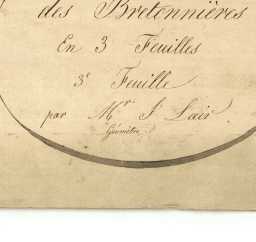 des Bretonnières
En 3 Feuilles
3e Feuille
par Mr J. Lair
Géomètre